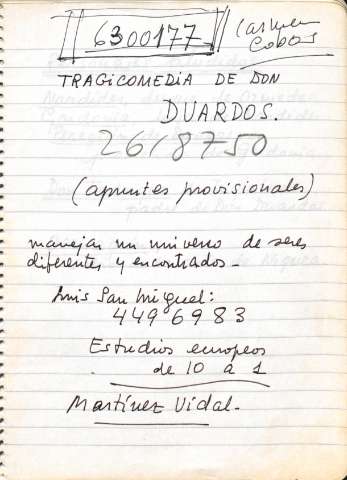 6300177
Carmen
Cobos
TRAGICOMEDIA DE DON
DUARDOS.
2618750
(apuntes provisionales)
manejar un universo de seres
diferentes y encontrados -
Luis San Miguel:
4496983
Estudios europeos
de 10 a 1
Martínez Vidal -